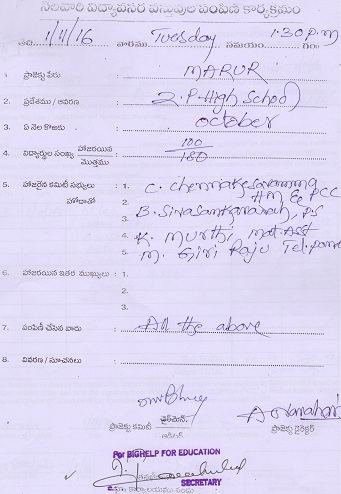 నెలవారి విద్యావసర వస్తువుల పంపిణి కార్యక్రమం
తేది: 1/11/16 వారము Tuesday సమయం 1:30 p.m గం.
1. ప్రాజెక్టు పేరు : MARUR
2. ప్రదేశము / ఆవరణ : Z.P. High School
3. ఏ నెల కొఱకు : October
4. విద్యార్థుల సంఖ్య హాజరయిన / మొత్తము : 100 / 180
5. హాజరైన కమిటీ సభ్యులు : 1. C. Chennakesavamma
హోదాతో 2. HM Ee PCC
3. B. Sivasankaraiah, PS
4. K. Murthi Mat. Asst
5. M. Giri Raju
6. హాజరయిన ఇతర ముఖ్యులు : 1.
2.
3.
7. పంపిణీ చేసిన వారు : All the above
8. వివరణ / సూచనలు :
ప్రాజెక్టు కమిటీ ఛైర్మెన్
ఆడిటర్
ప్రాజెక్టు డైరెక్టర్
For BIGHELP FOR EDUCATION
SECRETARY